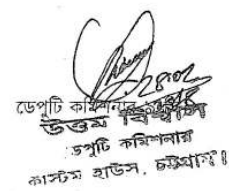 ২৪.০২
ডেপুটি কমিশনার
উত্তম বিশ্বাস
ডেপুটি কমিশনার
কাস্টম হাউস, চট্টগ্রাম।